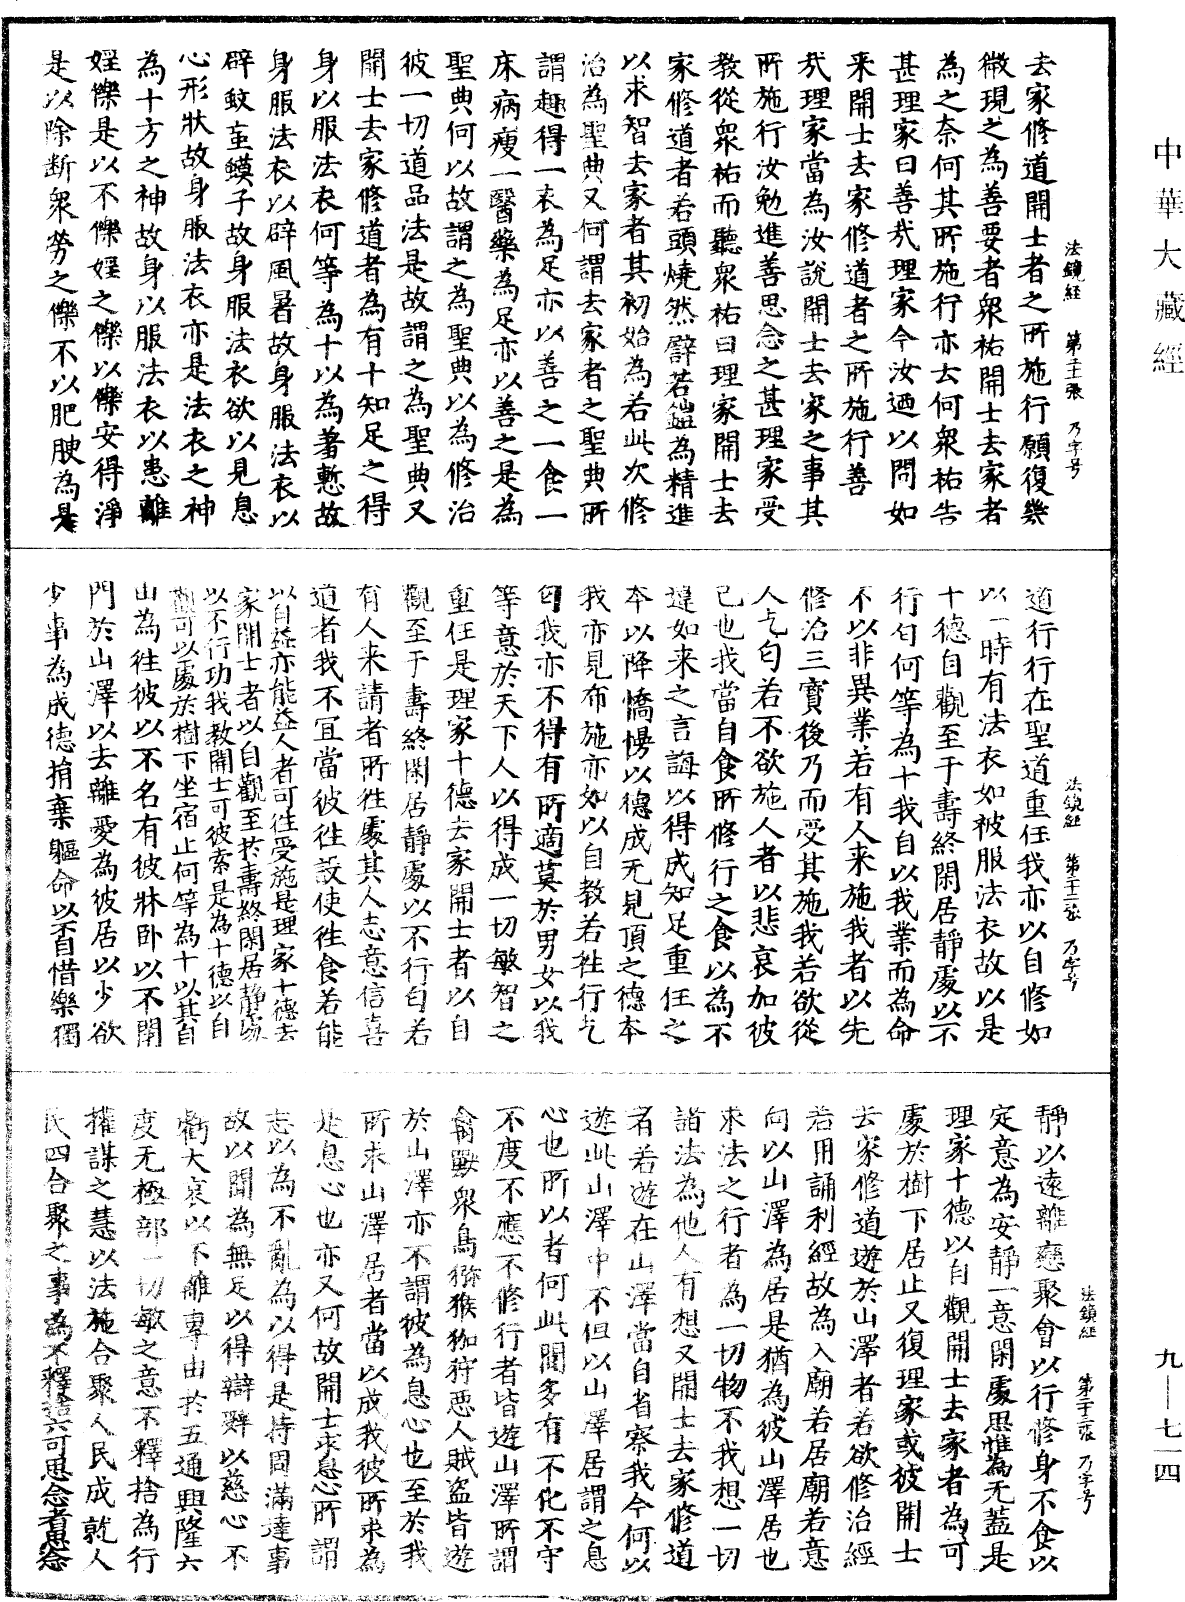 中華大藏經
法鏡経 第二十一張 乃字号
去家修道開士者之所施行願復幾
微現之為善要者衆祐開士去家者
為之奈何其所施行亦云何衆祐告
甚理家曰善㢤理家今汝迺以問如
来開士去家修道者之所施行善
㢤理家當為汝說開士去家之事其
所施行汝勉進善思念之甚理家受
教從衆祐而聽衆祐曰理家開士去
家修道者若頭燒然譬若鎧為精進
以求智去家者其初始為若此次修
治為聖典又何謂去家者之聖典所
謂趣得一衣為足亦以善之一食一
床病瘦一醫藥為足亦以善之是為
聖典何以故謂之為聖典以為修治
彼一切道品法是故謂之為聖典又
開士去家修道者為有十知足之得
身以服法衣何等為十以為著慙故
身服法衣以辟風暑故身服法衣以
辟蚊䖟蟆子故身服法衣欲以見息
心形狀故身服法衣亦是法衣之神
為十方之神故身以服法衣以患離
婬樂是以不樂婬之樂以樂安得淨
是以除断衆勞之樂不以肥腴為是
法鏡経 第二十二張 乃字号
道行行在聖道重任我亦以自修如
以一時有法衣如被服法衣故以是
十德自觀至于壽終閑居靜處以不
行匂何等為十我自以我業而為命
不以非異業若有人来施我者以先
修治三寶後乃而受其施我若欲從
人乞匂若不欲施人者以悲哀加彼
己也我當自食所修行之食以為不
違如来之言誨以得成知足重任之
本以降憍慢以德成无見頂之德本
我亦見布施亦如以自教若往行乞
匂我亦不得有所適莫於男女以我
等意於天下人以得成一切敏智之
重任是理家十德去家開士者以自
觀至于壽終閑居靜處以不行匂若
有人来請者所往處其人志意信喜
道者我不冝當彼往設使往食若能
以自益亦能益人者可往受施是理家十德去
家開士者以自觀至於壽終閑居靜處
以不行功我教開士可彼索是為十德以自
觀可以處於樹下坐宿止何等為十以其自
山為往彼以不名有彼牀卧以不閉
門於山澤以去離愛為彼居以少欲
少事為成德捐棄軀命以不自惜樂獨
法鏡経 第二十三張 乃字号
靜以遠離㥕聚會以行修身不食以
定意為安靜一意閑處思惟為无蓋是
理家十德以自觀開士去家者為可
處於樹下居止又復理家或彼開士
去家修道遊於山澤者若欲修治經
若用誦利經故為入廟若居廟若意
向以山澤為居是猶為彼山澤居也
求法之行者為一切物不我想一切
諸法為他人有想又開士去家修道
者若遊在山澤當自省察我今何以
遊此山澤中不但以山澤居謂之息
心也所以者何此閒多有不化不守
不度不應不修行者皆遊山澤所謂
禽獸衆鳥獼猴㹢狩惡人賊盜皆遊
於山澤亦不謂彼為息心也至於我
所来山澤居者當以成我彼所求為
是息心也亦又何故開士求息心所謂
志以為不亂為以得是持周滿達事
故以聞為無足以得辯辭以慈心不
虧大哀以不離專由於五通興隆六
度无極部一切敏之意不釋捨為行
權謀之慧以法施合聚人民成就人
民四合聚之事為不釋捨六可思念者思念
九—七一四